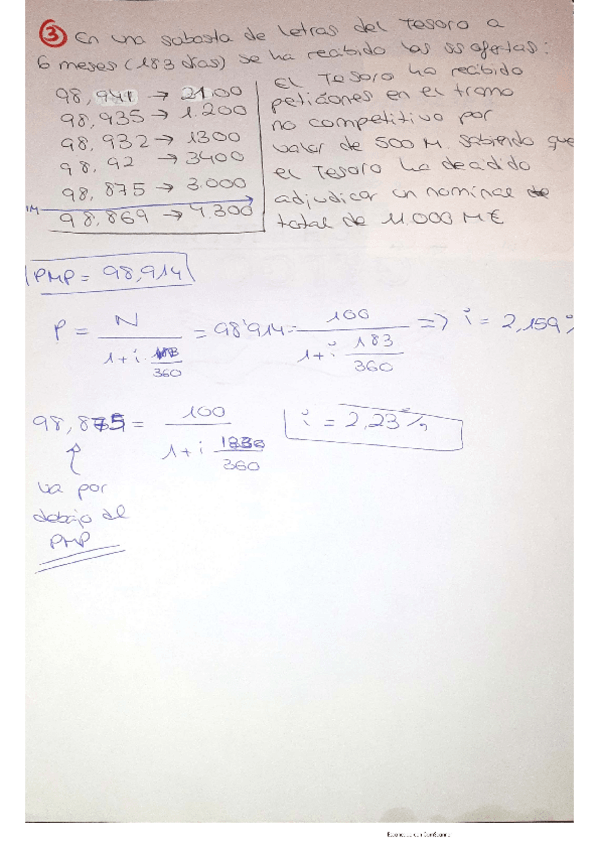 ③ En una subasta de Letras del Tesoro a
6 meses (183 días) se ha recibido las ss ofertas:
98,941 → 2100
98,935 → 1.200
98,932 → 1300
98,92 → 3400
98,875 → 3.000
98,869 → 4.300
El Tesoro ha recibido
peticiones en el tramo
no competitivo por
valor de 500 M. sabiendo que
el Tesoro ha decidido
adjudicar un nominal
total de 11.000 M€
PMP = 98,914
P = N / 1+i · 183/360 = 98'914 = 100 / 1+i 183/360 => i = 2,159%
98,875 = 100 / 1+i 183/360
i = 2,23%
va por
debajo del
PMP